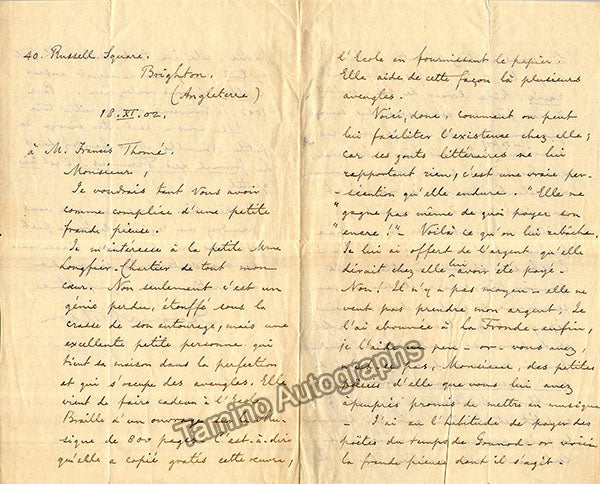 40. Russell Square.
Brighton.
(Angleterre)
18.XI.02.
à M. Francis Thomé.
Monsieur,
Je voudrais tant vous avoir
comme complice d'une petite
fraude pieuse.
Je m'intéresse à la petite Mme
Longfier-Chartier de tout mon
cœur. Non seulement c'est un
génie perdu, étouffé sous la
crasse de son entourage, mais une
excellente petite personne qui
tient sa maison dans la perfection
et qui s'occupe des aveugles. Elle
vient de faire cadeau à l'Ecole
Braille d'un ouvrage
de 800 pages c'est-à-dire
qu'elle a copié gratis cette œuvre,
l'Ecole en fournissant le papier.
Elle aide de cette façon là plusieurs
aveugles.
Voici, donc, comment on peut
lui faciliter l'existence chez elle;
car ses goûts littéraires ne lui
rapportant rien, c'est une vraie per-
-sécution qu'elle endure. "Elle ne
"gagne pas même de quoi payer son
"encre!" - Voilà ce qu'on lui rabâche.
Je lui ai offert de l'argent qu'elle
dirait chez elle lui avoir été payé -
Non! Il n'y a pas moyen - elle ne
veut pas prendre mon argent; Je
l'ai abonnée à La Fronde - enfin,
je l'aide un peu - or - vous avez,
n'est-ce pas, Monsieur, des petites
poésies d'elle que vous lui avez
àpeuprès promis de mettre en musique
- J'ai eu l'habitude de payer des
poëtes du temps de Gounod - or voici
la fraude pieuse dont il s'agit -
Tamino Autographs